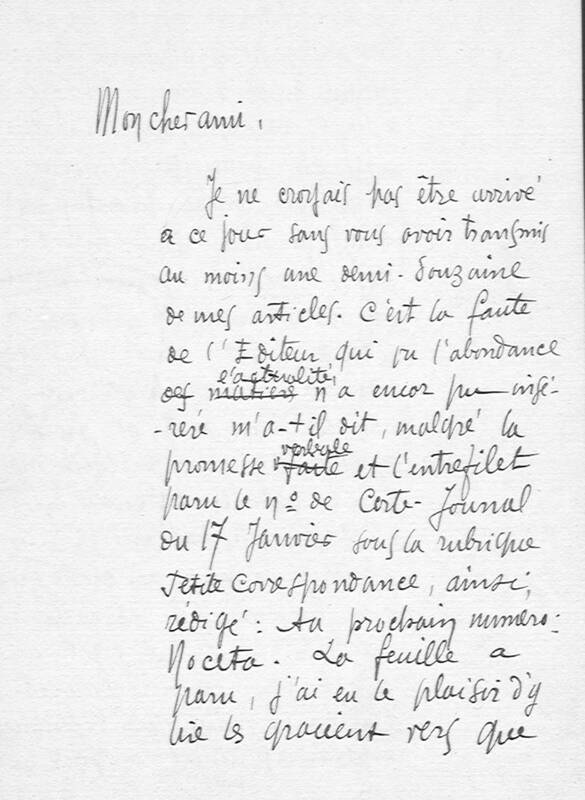 Mon cher ami,
Je ne croyais pas être arrivé
a ce jour sans vous avoir transmis
au moins une demi-douzaine
de mes articles. C'est la faute
de l'Editeur qui vu l'abondance
l'actualité,
des matière n'a encor pu insé-
-reré m'a-t-il dit, malgré la
verbale
promesse faite et l'entrefilet
paru le nº de Corte-Journal
du 17 Janvier sous la rubrique
Petite Correspondance, ainsi,
rédigé: Au prochain numéro:
Noceta. La feuille a
paru, j'ai eu le plaisir d'y
lire les gracieux vers que